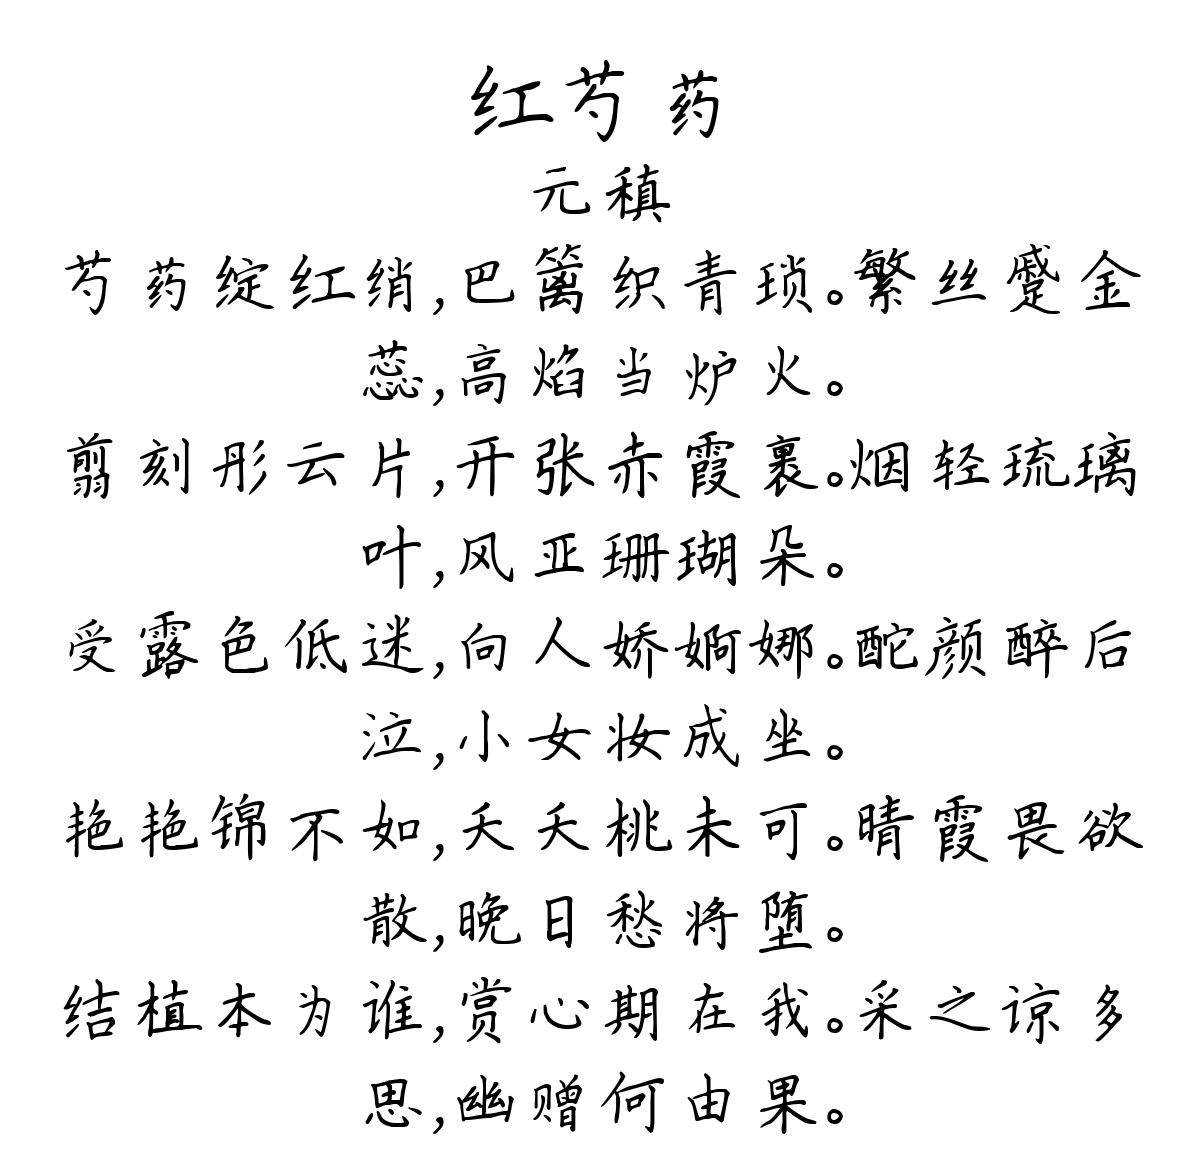 红芍药
元稹
芍药绽红绡,巴篱织青琐。繁丝蹙金
蕊,高焰当炉火。
翦刻彤云片,开张赤霞裹。烟轻琉璃
叶,风亚珊瑚朵。
受露色低迷,向人娇婀娜。酡颜醉后
泣,小女妆成坐。
艳艳锦不如,夭夭桃未可。晴霞畏欲
散,晚日愁将堕。
结植本为谁,赏心期在我。采之谅多
思,幽赠何由果。